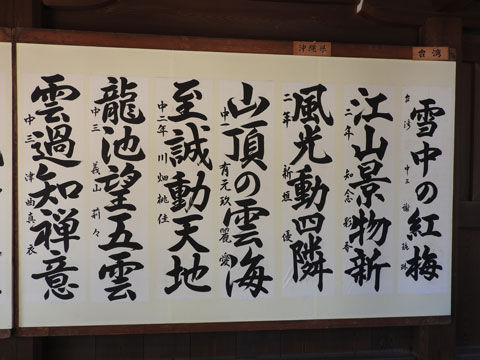 台湾
沖縄県
雪中の紅梅
台湾 中三 謝
江山景物新
二年 知念
風光動四隣
二年 新垣 優
山頂の雲海
中一 有元玖麗愛
至誠動天地
中二年 川畑桃佳
龍池望五雲
中三 義山莉々
雲過知禅意
中三 津曲真衣